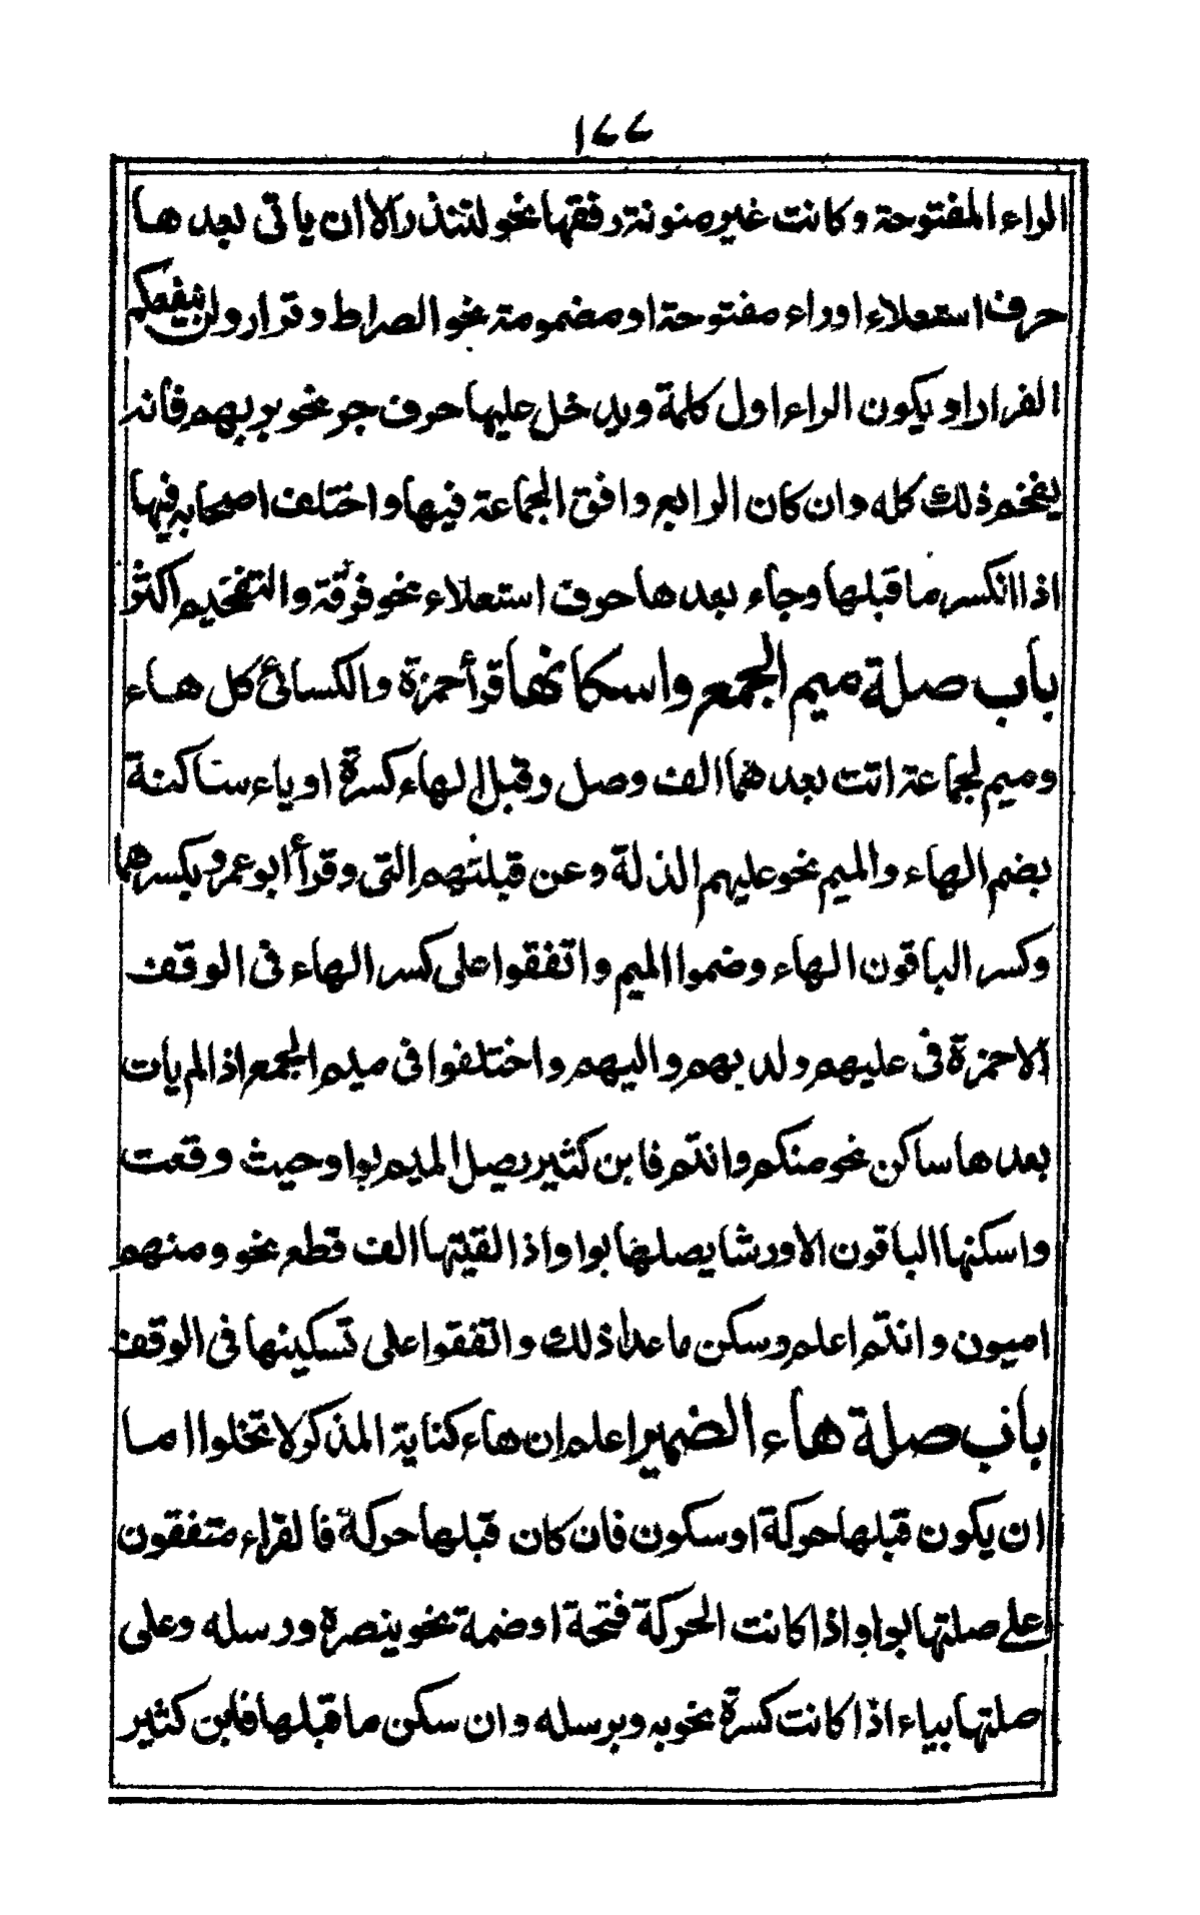 ١٧٧
الراء المفتوحة وكانت غير منونة رققها نحو لتنذر الا ان ياتى بعد ها
حرف استعلاء اوراء مفتوحة او مضمومة نحو الصراط و قرار ولن ينفعكم
الفرار او يكون الراء اول كلمة ويدخل عليها حرف جر نحو بربهم فانه
يفخم ذلك كله وان كان الرابع وافق الجماعة فيها واختلف اصحابه فيها
اذا انكسر ما قبلها وجاء بعد ها حرف استعلاء نحو فرقة والتفخيم اكثر
باب صلة ميم الجمع واسكانها قرأ حمزة والكسائى كل هاء
وميم لجماعة اتت بعد هما الف وصل وقبل الهاء كسرة او ياء ساكنة
بضم الهاء والميم نحو عليهم الذلة وعن قبلتهم التى وقرأ ابو عمرو بكسرهما
وكسر الباقون الهاء وضموا الميم واتفقوا على كسر الهاء فى الوقف
الا حمزة فى عليهم ولديهم واليهم واختلفوا فى ميم الجمع اذا لم يات
بعد ها ساكن نحو منكم وانتم فابن كثير يصل الميم بواو حيث وقعت
واسكنها الباقون الا ورشا يصلها بواو اذا لقيتها الف قطع نحو ومنهم
اميون وانتم اعلم وسكن ما عدا ذلك واتفقوا على تسكينها فى الوقف
باب صلة هاء الضمير اعلم ان هاء كناية المذكر لا تخلوا اما
ان يكون قبلها حركة او سكون فان كان قبلها حركة فالقراء متفقون
على صلتها بواو اذا كانت الحركة فتحة او ضمة نحو ينصره ورسله وعلى
صلتها بياء اذا كانت كسرة نحو به وبرسله وان سكن ما قبلها فابن كثير